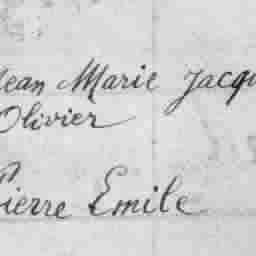 Jean Marie Jacqu
Olivier
Pierre Emile